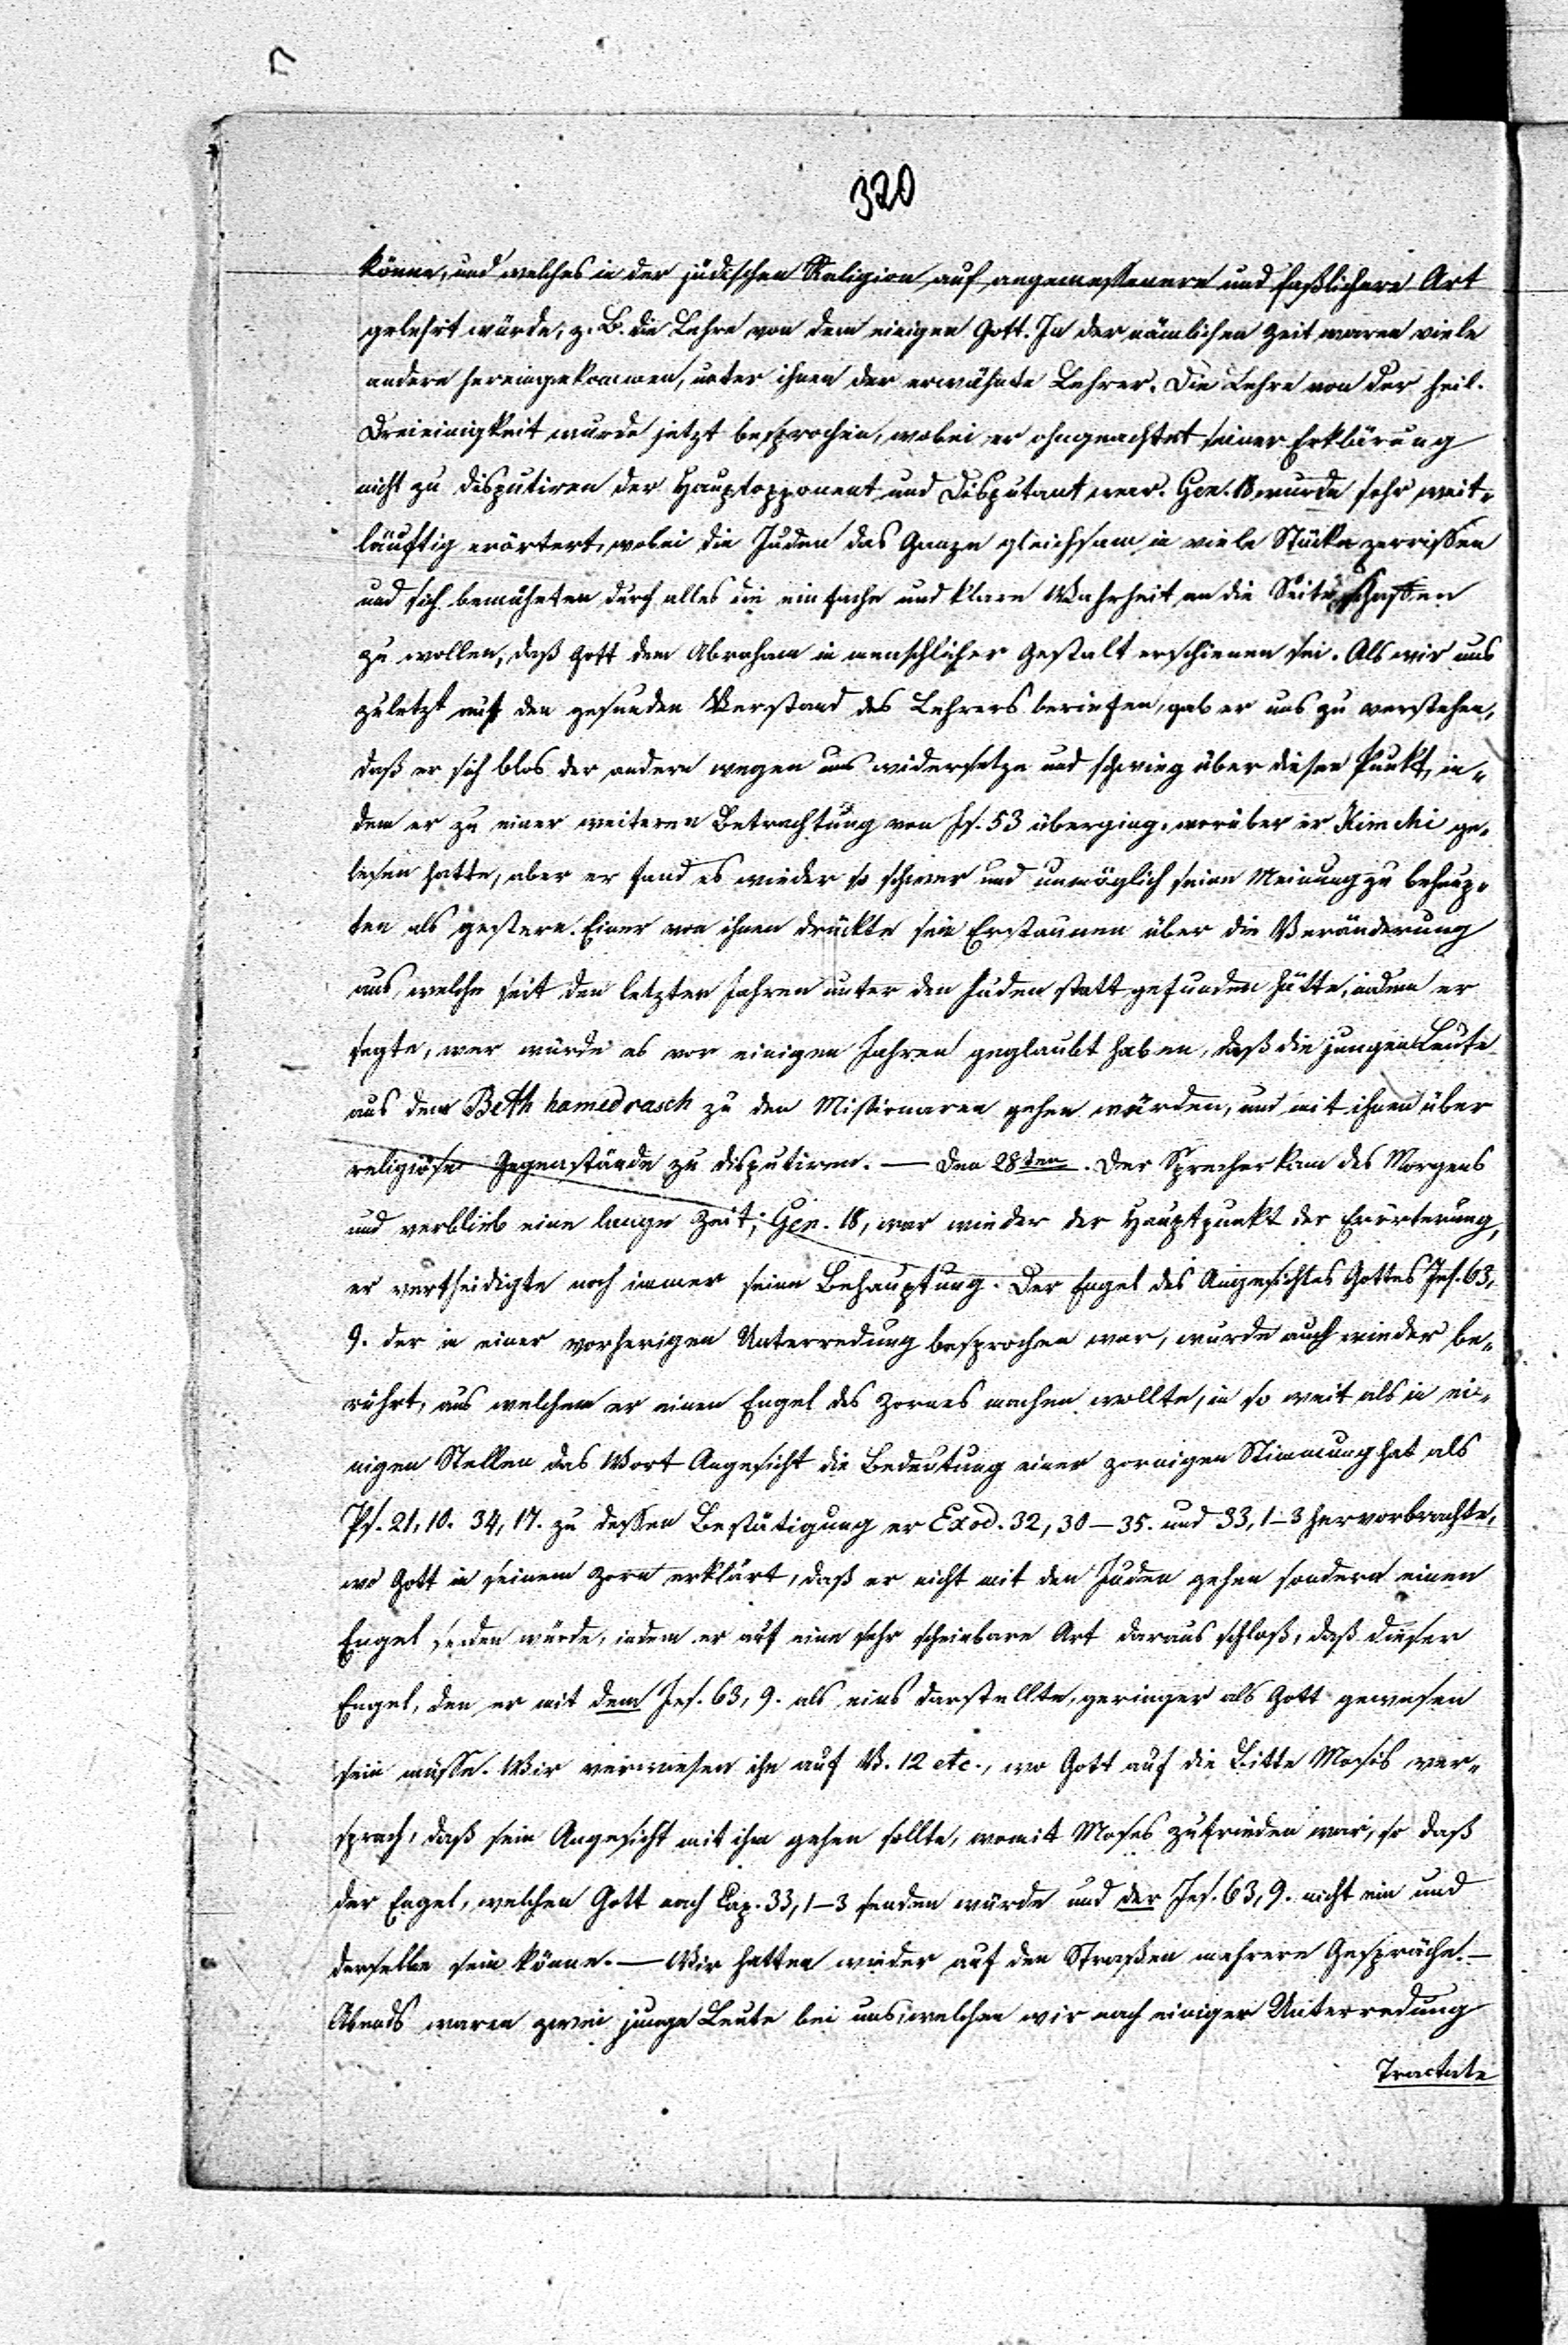 320
könne, und welches in der jüdischen Religion auf angemessenere und faßlichere Art
gelehrt würde, z. B. die Lehre von dem einigen Gott. In der nämlichen Zeit waren viele
andere hereingekommen, unter ihnen der erwähnte Lehrer. Die Lehre von der heil.
Dreieinigkeit wurde jetzt besprochen, wobei er ohngeachtet seiner Erklärung
nicht zu disputiren der Hauptopponent und Disputant war. Gen. 18 wurde sehr weit-
läuftig erörtert, wobei die Juden das Ganze gleichsam in viele Stücke zerrissen
und sich bemüheten durch alles die einfache und klare Wahrheit an die Seite schaffen
zu wollen, daß Gott dem Abraham in menschlicher Gestalt erschienen sei. Als wir uns
zuletzt auf den gesunden Verstand des Lehrers beriefen, gab er uns zu verstehen,
daß er sich blos der andern wegen uns widersetze und schwieg über diesen Punkt, in-
dem er zu einer weiteren Betrachtung von Js. 53 überging, worüber er Kimchi ge-
lesen hatte, aber er fand es wieder so schwer und unmöglich seine Meinung zu behaup-
ten als gestern. Einer von ihnen drückte sein Erstaunen über die Veränderung
aus, welche seit den letzten Jahren unter den Juden statt gefunden hätte, indem er
sagte, wer würde es vor einigen Jahren geglaubt haben, daß die jungen Leute
aus dem Beth hamedrasch zu den Missionaren gehen würden, und mit ihnen über
religiöse Gegenstände zu disputiren. — Den 28ten. Der Sprecher kam des Morgens
und verblieb eine lange Zeit; Gen. 18, war wieder der Hauptpunkt der Erörterung,
er vertheidigte noch immer seine Behauptung. Der Engel des Angesichtes Gottes Jes. 63,
9. der in einer vorherigen Unterredung besprochen war, wurde auch wieder be-
rührt, aus welchem er einen Engel des Zornes machen wollte, in so weit als in ei-
nigen Stellen das Wort Angesicht die Bedeutung einer zornigen Stimmung hat als
Ps. 21, 10. 34, 17. zu dessen Bestätigung er Exod. 32, 30–35. und 33, 1–3 hervorbrachte,
wo Gott in seinem Zorn erklärt, daß er nicht mit den Juden gehen sondern einen
Engel senden würde, indem er auf eine sehr scheinbare Art daraus schloß, daß dieser
Engel, den er mit dem Jes. 63, 9. als eins darstellte, geringer als Gott gewesen
sein müsse. Wir verwiesen ihn auf V. 12 etc., wo Gott auf die Bitte Mosis ver-
sprach, daß sein Angesicht mit ihm gehen sollte, womit Moses zufrieden war, so daß
der Engel, welchen Gott nach Cap. 33, 1–3 senden würde und der Jes. 63, 9. nicht ein und
derselbe sein könne. — Wir hatten wieder auf den Straßen mehrere Gespräche. —
Abends waren zwei junge Leute bei uns, welchen wir nach einiger Unterredung
Tractate